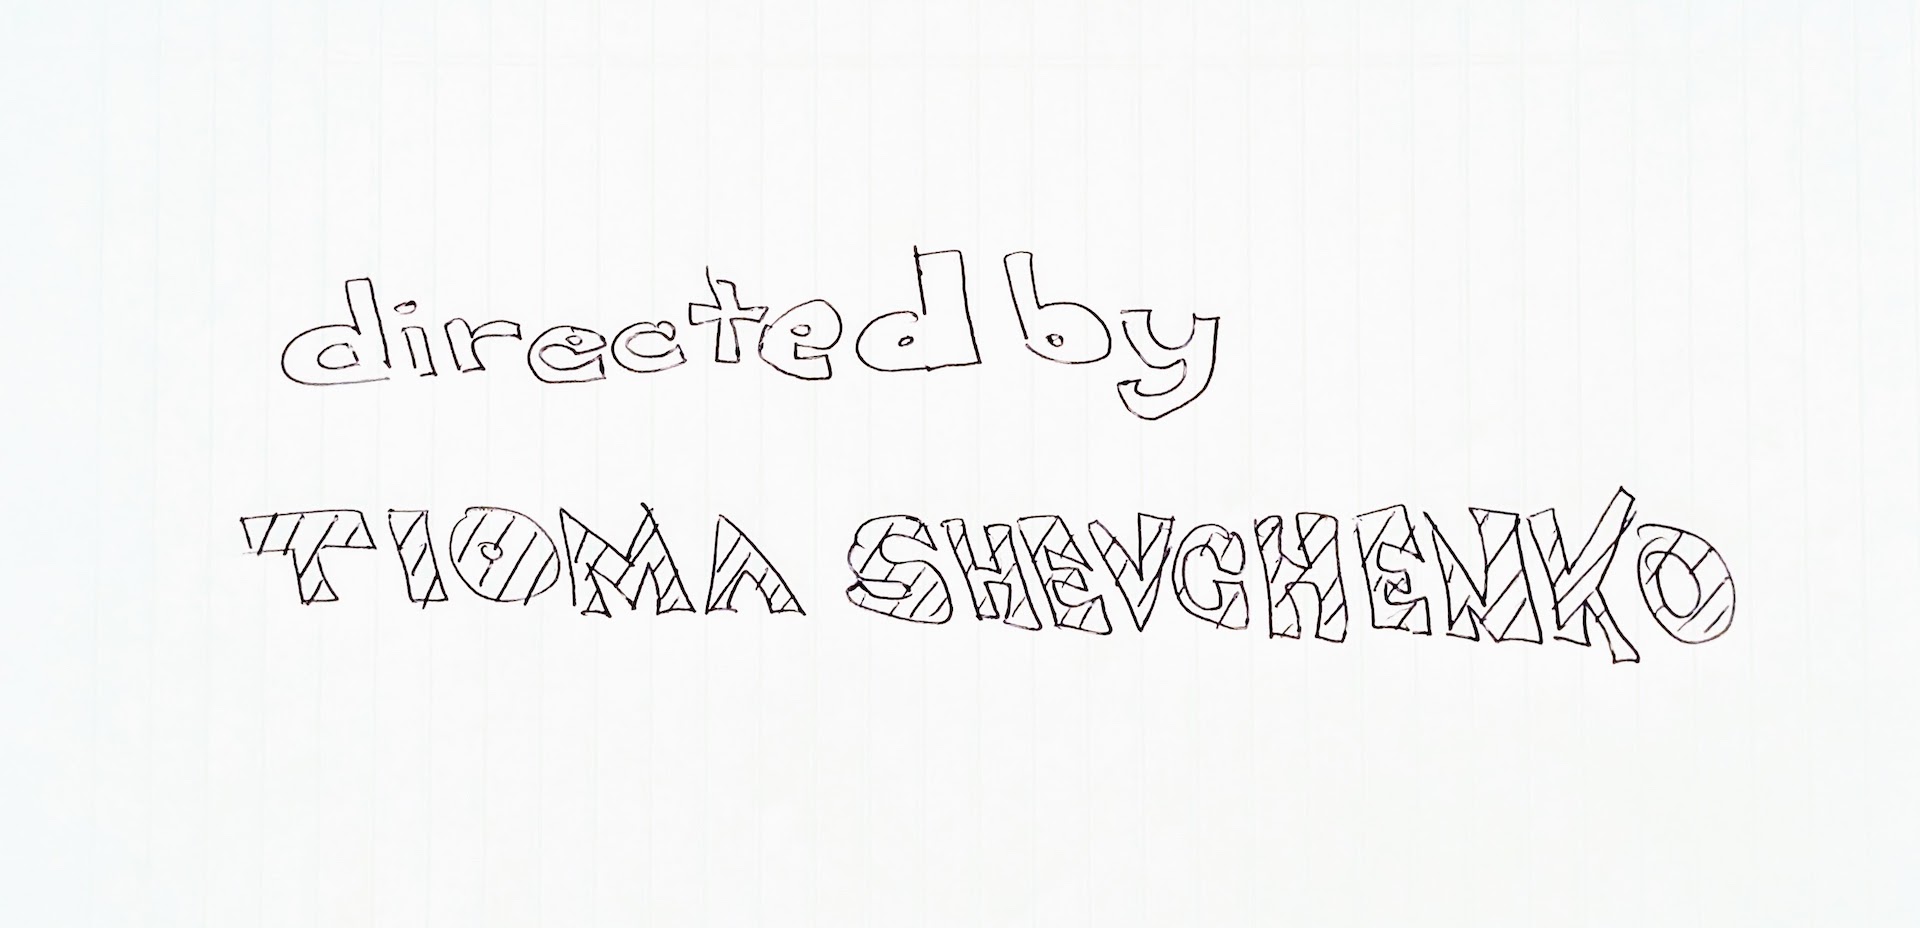 directed by
TIOMA SHEVCHENKO